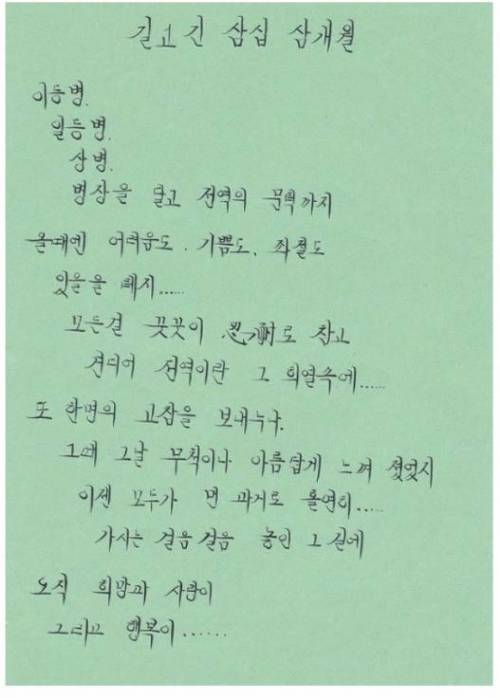 길고긴 삼십 삼개월
이등병.
일등병.
상병.
병장을 달고 전역의 문턱까지
올때엔 어려움도. 기쁨도, 좌절도
있을을 테지.....
모든걸 꿋꿋이 忍耐로 참고
견디어 전역이란 그 희열속에.....
또 한명의 고참을 보내누나.
그때 그날 무척이나 아름답게 느껴
이젠 모두가 먼 과거로 홀연히.....
가시는 걸음걸음 놓인 그 길에
오직 희망과 사랑이
그리고 행복이......